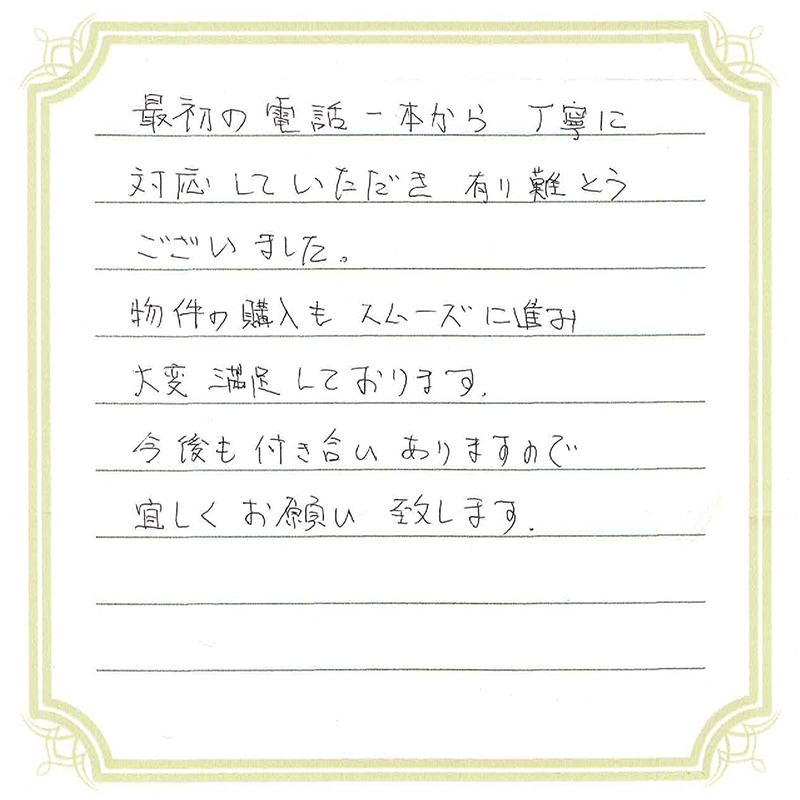 最初の電話一本から 丁寧に
対応していただき 有り難とう
ございました。
物件の購入も スムーズに進み
大変 満足しております。
今後も 付き合い ありますので
宜しく お願い 致します。